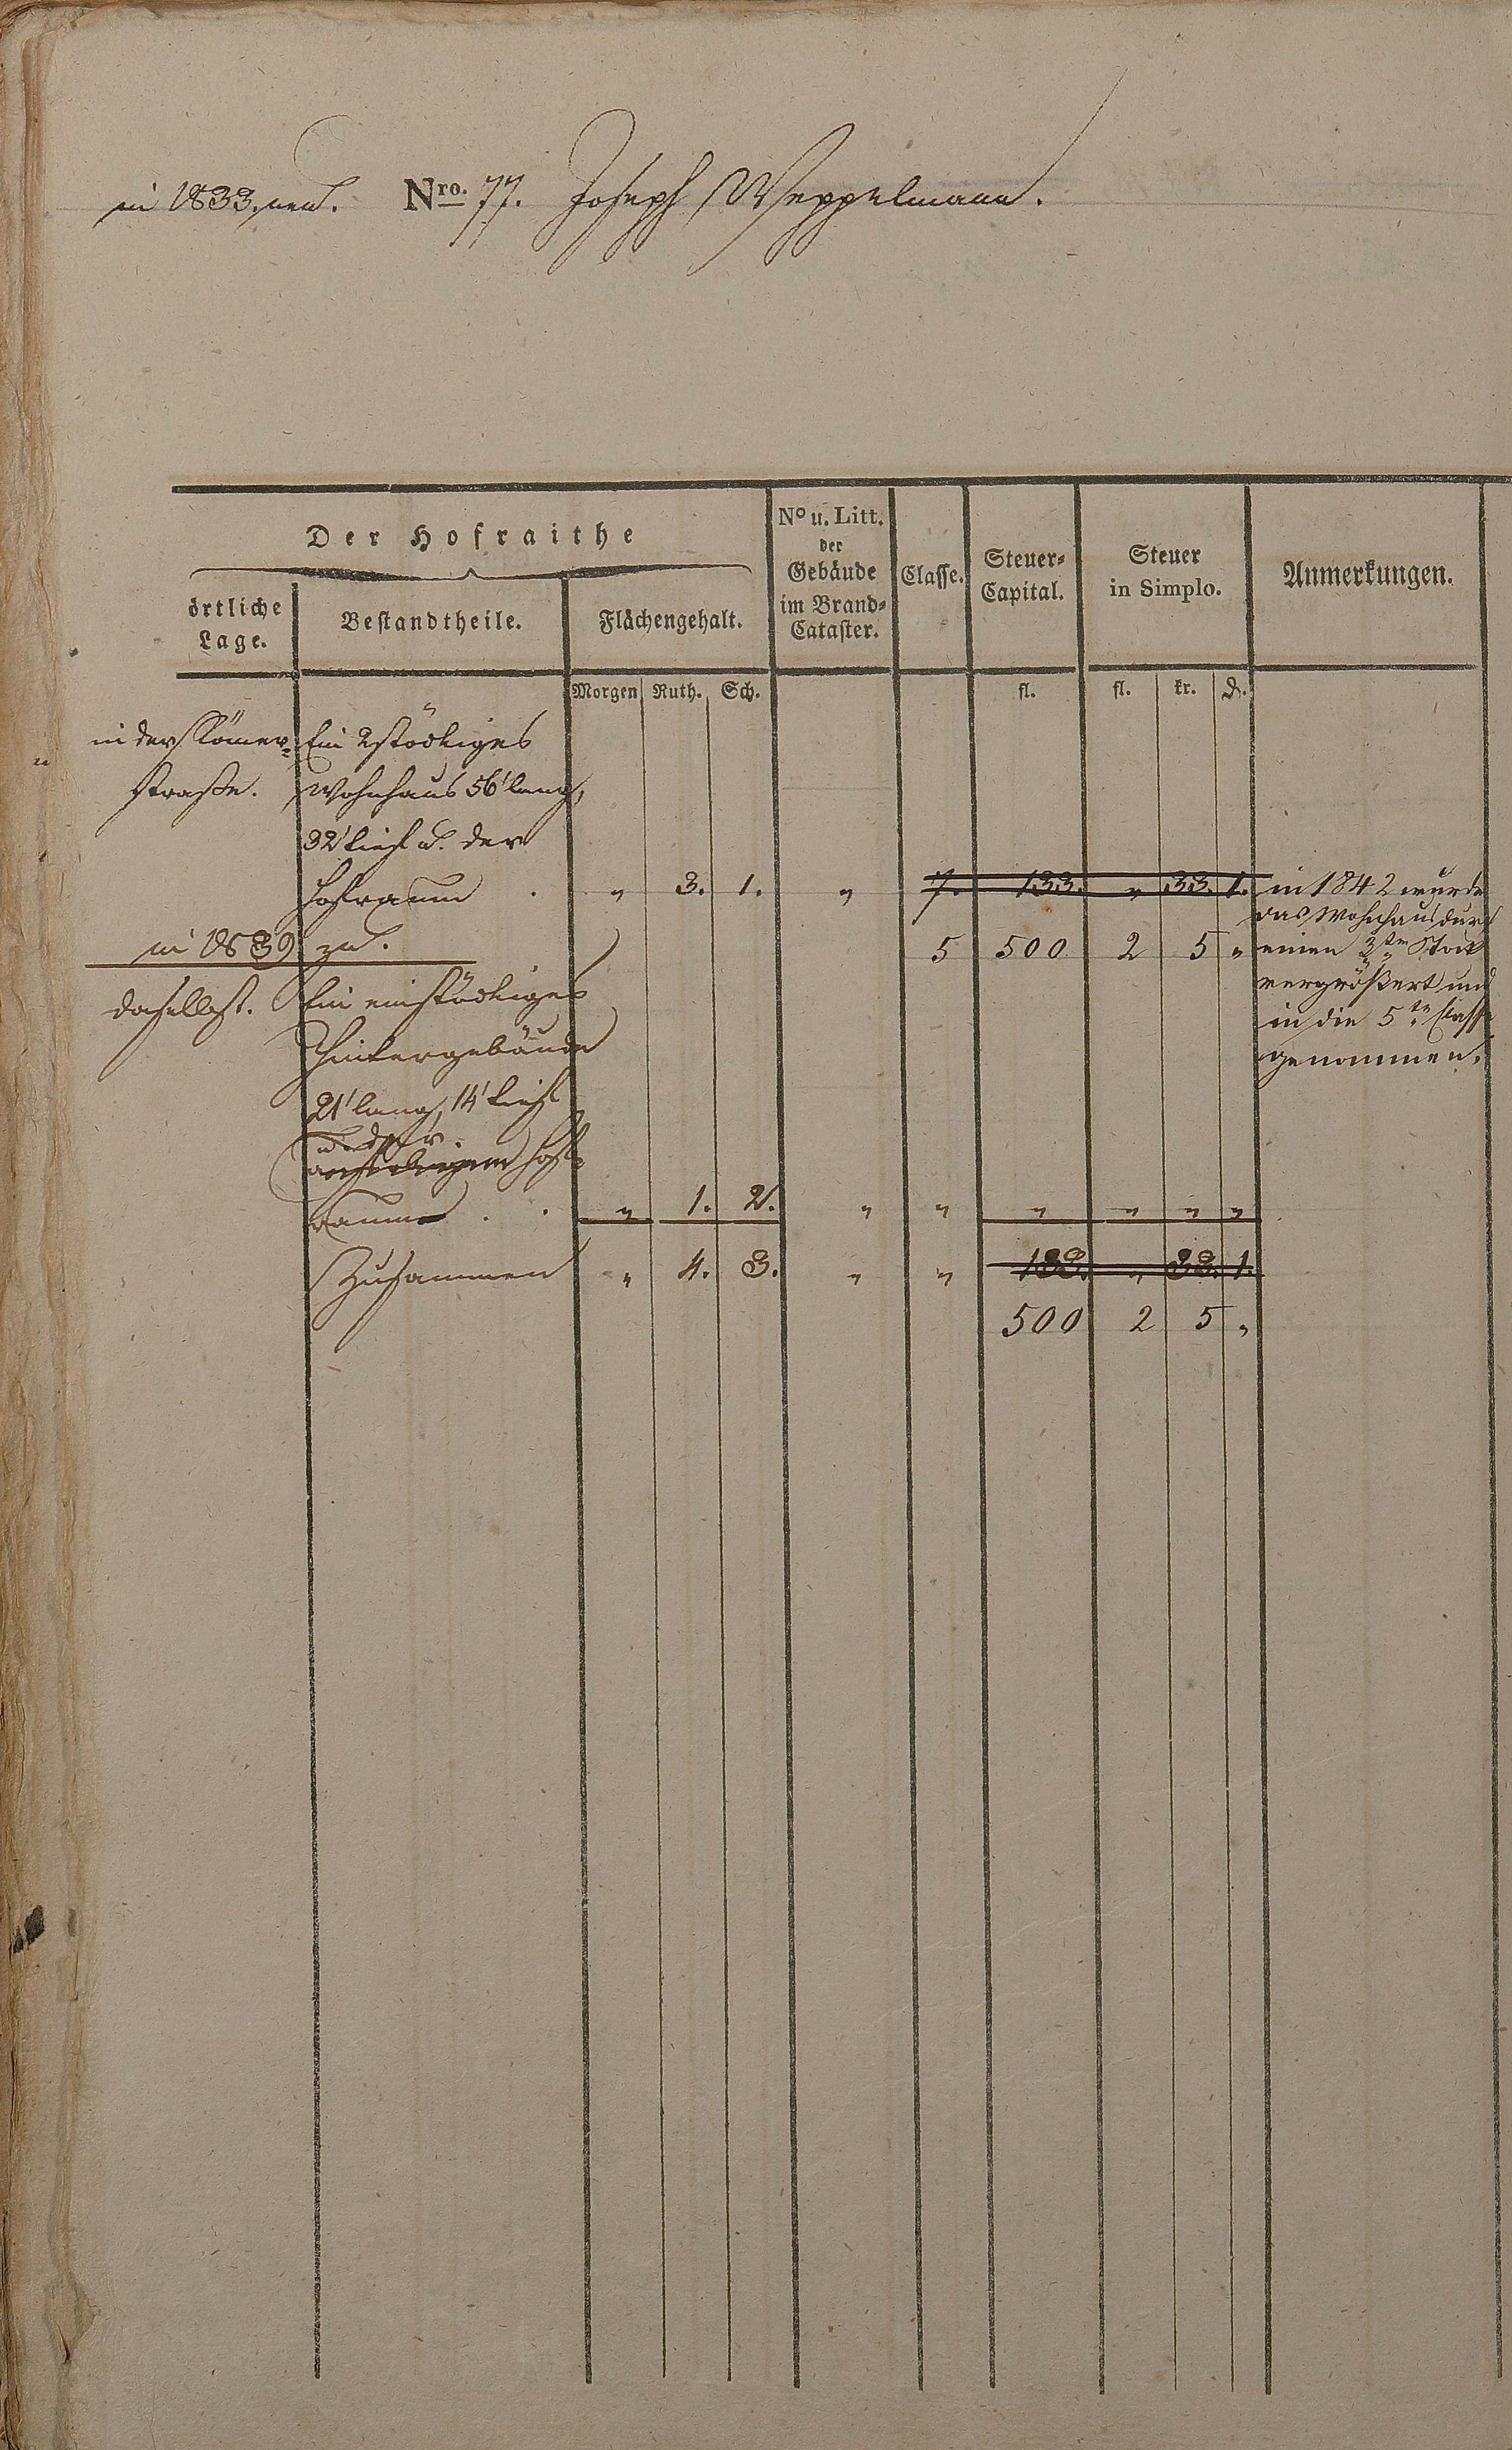 in 1833. neu. Nro. 77. Joseph Weppelmann.
Der Hofraithe
örtliche Lage.
Bestandtheile.
Flächengehalt.
No u. Litt. der Gebäude im Brand-Cataster.
Classe.
Steuer-Capital.
Steuer in Simplo.
Anmerkungen.
Morgen Ruth. Sch. fl. fl. kr. d.
in der Römer- Ein 2stöckiges
straße. Wohnhaus 56' lang,
32' tief u. der
Hofraum . „ 3. 1. „ 7. 133. „ 33. 1. in 1842 wurde
das Wohnhaus durch
in 1839 zu. 5 500 2 5 „ einen 3ten Stock
vergrößert und
daselbst. Ein einstöckiges in die 5te Classe
Hintergebäude genommen.
21' lang, 14' tief
u. der
Hof-
raum . . „ 1. 2. „ „ „ „ „ „
Zusammen „ 4. 3. „ „ 133. „ 33. 1.
500 2 5 „